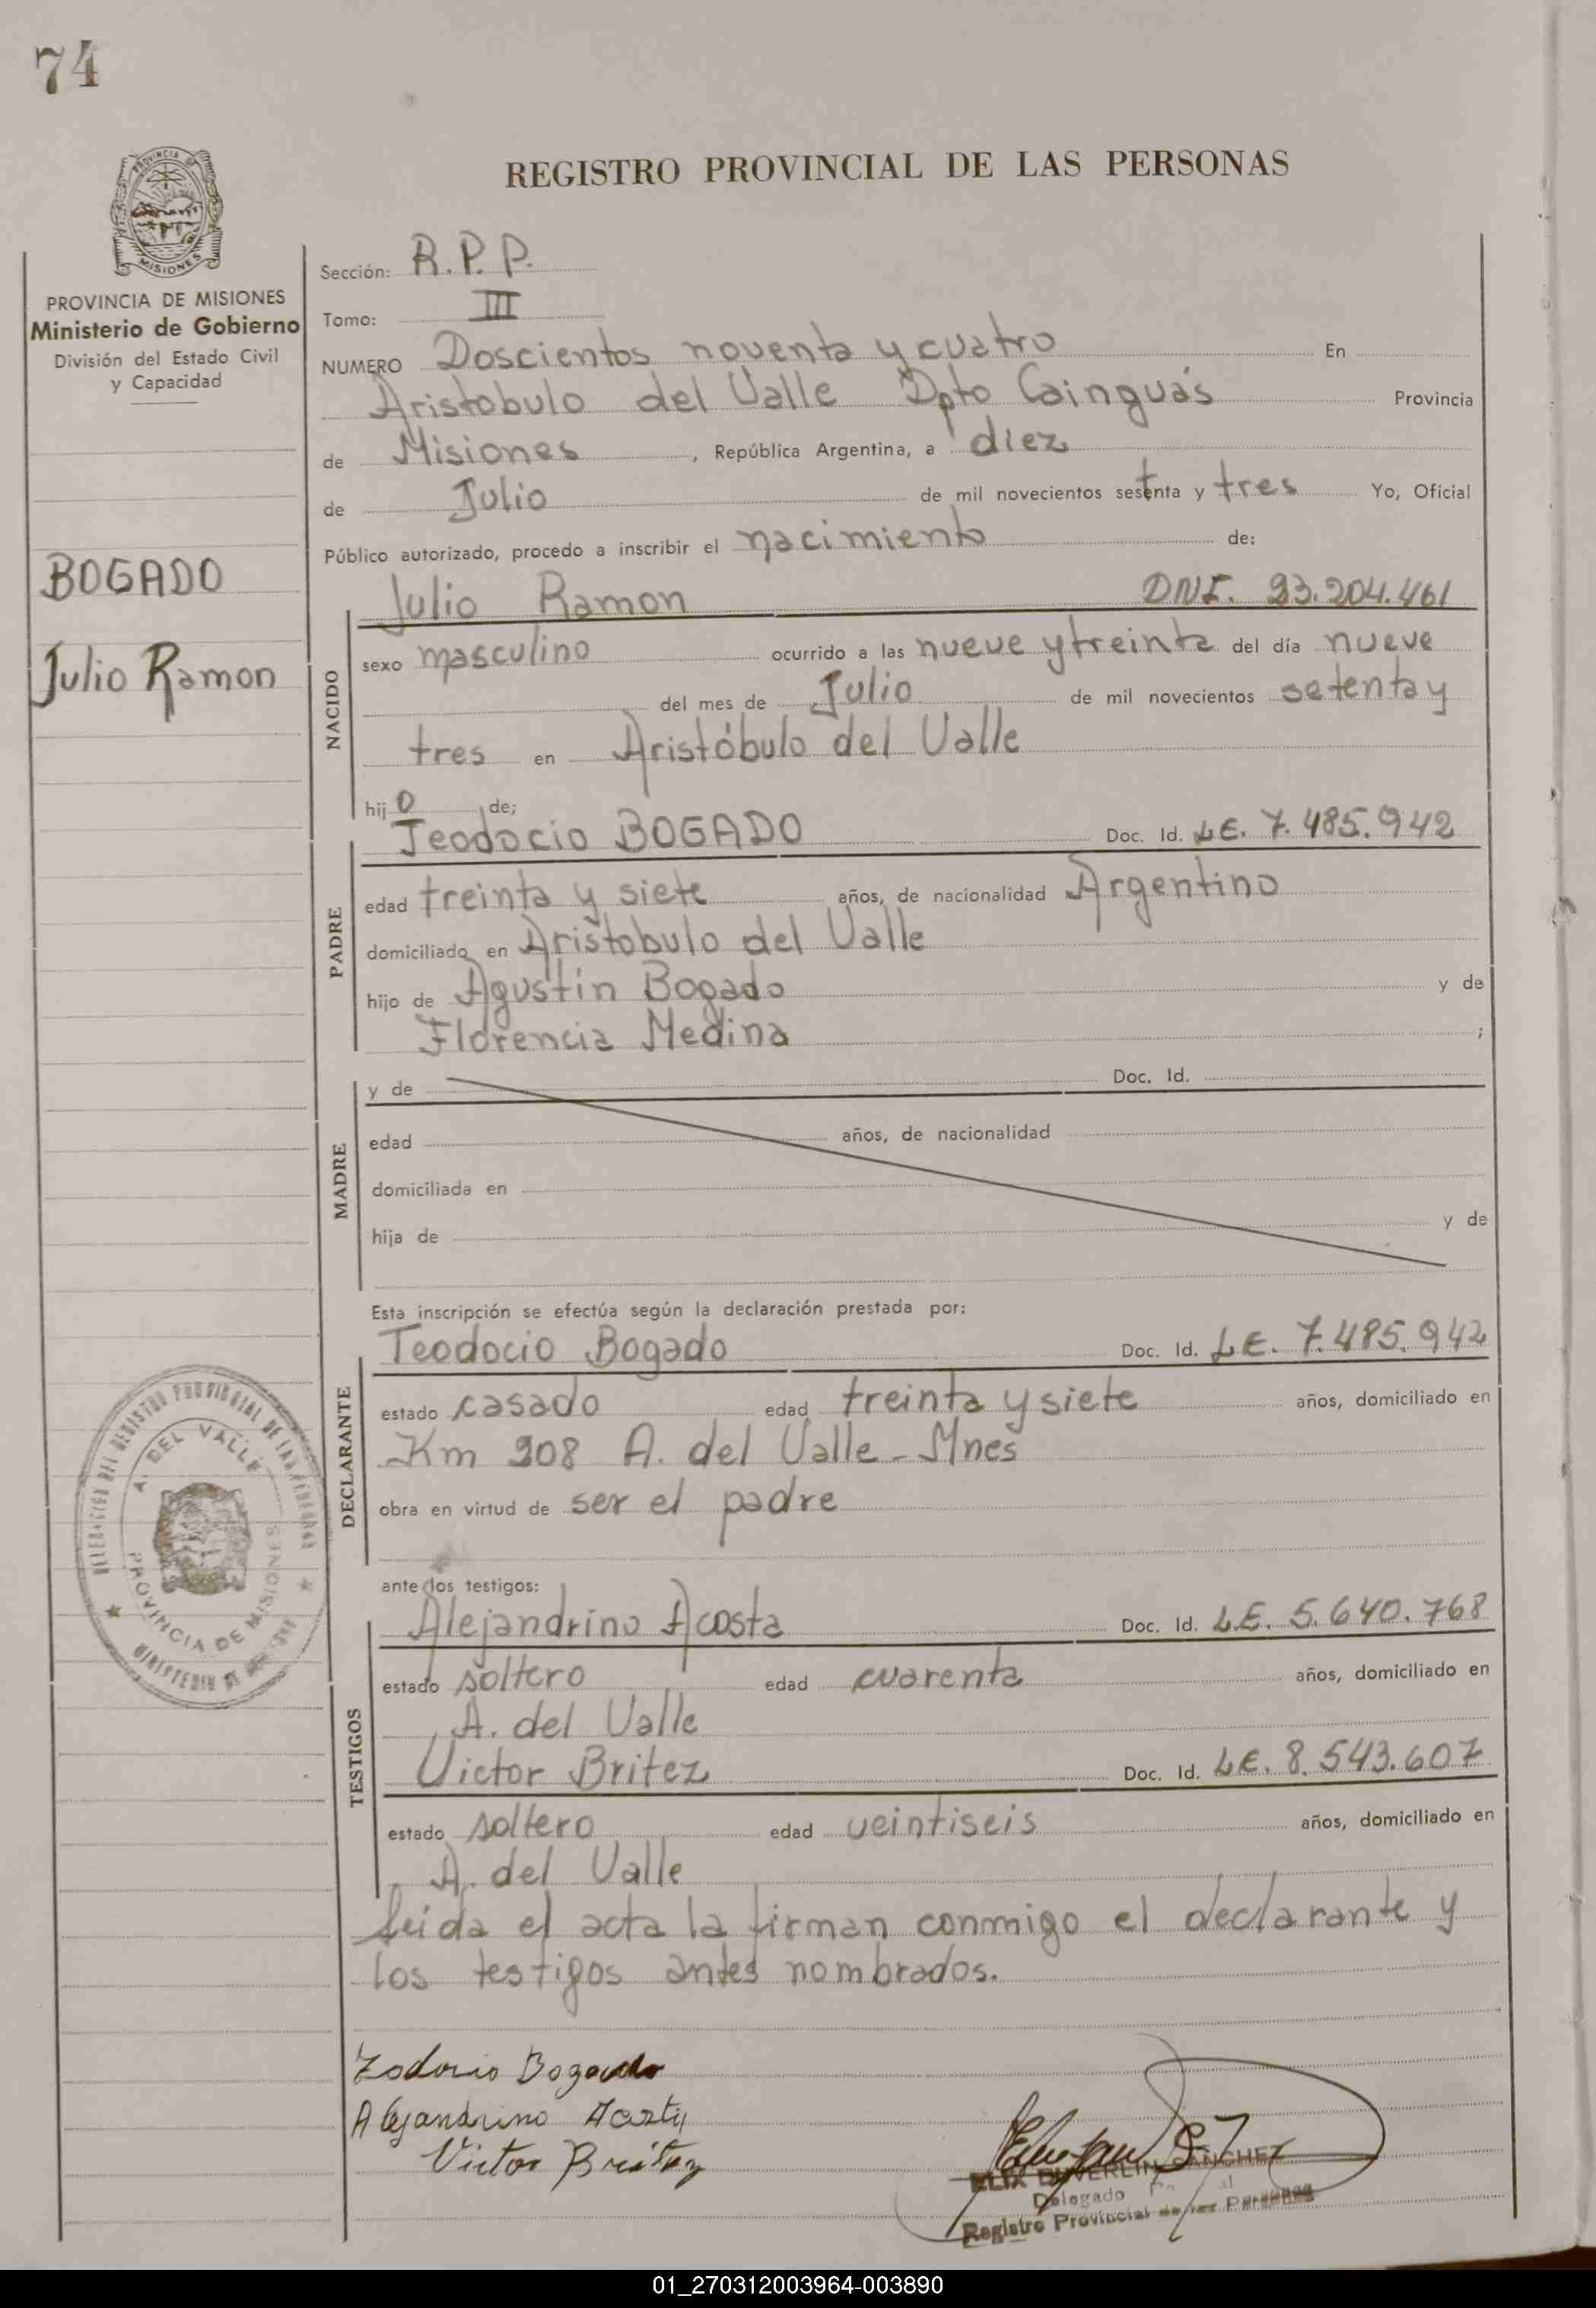 74
REGISTRO PROVINCIAL DE LAS PERSONAS
PROVINCIA DE MISIONES
PROVINCIA DE MISIONES
Ministerio de Gobierno
División del Estado Civil
y Capacidad
BOGADO
Julio Ramon
Sección: R.P.P.
Tomo: III
NUMERO Doscientos noventa y cuatro En
Aristobulo del Valle Dpto Cainguás Provincia
de Misiones, República Argentina, a diez
de Julio de mil novecientos setenta y tres Yo, Oficial
Público autorizado, procedo a inscribir el nacimiento de:
Julio Ramon DNI. 23.204.461
NACIDO
sexo masculino ocurrido a las nueve y treinta del día nueve
del mes de Julio de mil novecientos setenta y
tres en Aristóbulo del Valle
hijo de;
Teodocio BOGADO Doc. Id. LE. 7.485.942
PADRE
edad treinta y siete años, de nacionalidad Argentino
domiciliado en Aristobulo del Valle
hijo de Agustin Bogado y de
Florencia Medina ;
MADRE
y de Doc. Id.
edad años, de nacionalidad
domiciliada en
hija de y de
Esta inscripción se efectúa según la declaración prestada por:
Teodocio Bogado Doc. Id. LE. 7.485.942
DECLARANTE
estado casado edad treinta y siete años, domiciliado en
Km 208 A. del Valle - Mnes
obra en virtud de ser el padre
ante los testigos:
Alejandrino Acosta Doc. Id. L.E. 5.640.768
TESTIGOS
estado soltero edad cuarenta años, domiciliado en
A. del Valle
Victor Britez Doc. Id. LE. 8.543.607
estado soltero edad veintiseis años, domiciliado en
A. del Valle
leida el acta la firman conmigo el declarante y
los testigos antes nombrados.
DELEGACION DEL REGISTRO PROVINCIAL DE LAS PERSONAS
A. DEL VALLE
PROVINCIA DE MISIONES
MINISTERIO DE
Bogado
Alejandrino
Victor Britez
SANCHEZ
Delegado
Registro Provincial de las Personas
01_270312003964-003890